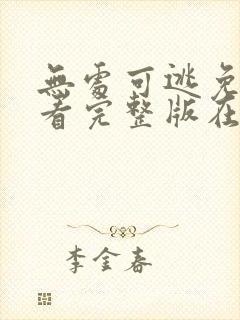 無處可逃免
看完整版在
李金春